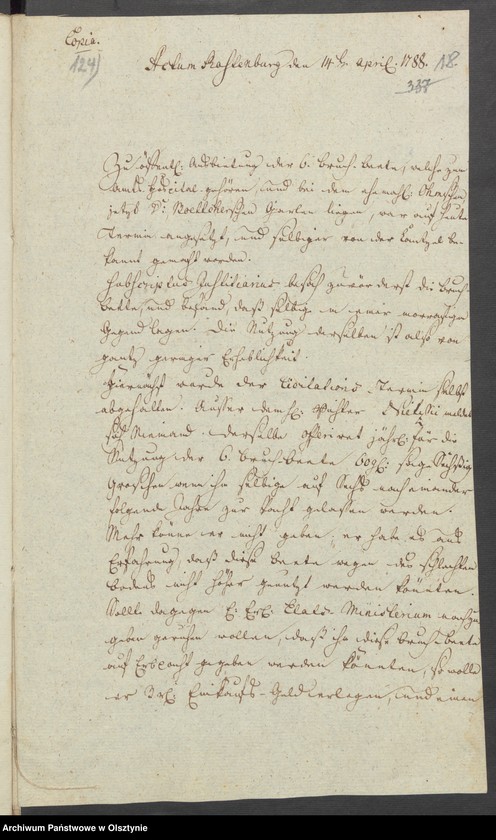 Copia.
124)
Actum Rastenburg den 14 t. April. 1788. 18.
337
Zu öffentl. Ausbietung der 6. Bruch-Beete, welche zum
Amts-Hospital gehören, und bei dem ehemahl.
jetzt Garten liegen, war auf heute
Termin angesetzt, und selbiger von der Cantzel be-
kannt gemacht worden.
Subscriptus Justitiarius besah zuvörderst die Bruch-
Beete, und befand, daß selbige in einer morrastigen
Gegend lagen. Die Nutzung derselben ist also von
gantz geringer Erheblichkeit.
Hiernächst wurde der Licitations-Termin selbst
abgehalten. Ausser dem H. Pächter meldete
sich Niemand. Derselbe offeriret jährl. für die
Nutzung der 6 Bruch-Beete 60 g. sage Sechszig
Groschen, wenn ihm selbige auf Sechs nach einander
folgende Jahre zur Pacht gelassen werden.
Mehr könne er nicht geben, er habe es aus
Erfahrung, daß diese Beete wegen des schlechten
Bodens nicht höher genutzt werden könnten.
Sollte dagegen E. Erl. Etats-Ministerium nachzu-
geben geruhen wollen, daß ihm diese Bruch-Beete
auf Erbpacht gegeben werden könnten, so wolle
er 3 rl. Einkaufs-Geld erlegen, und einen
Archiwum Państwowe w Olsztynie